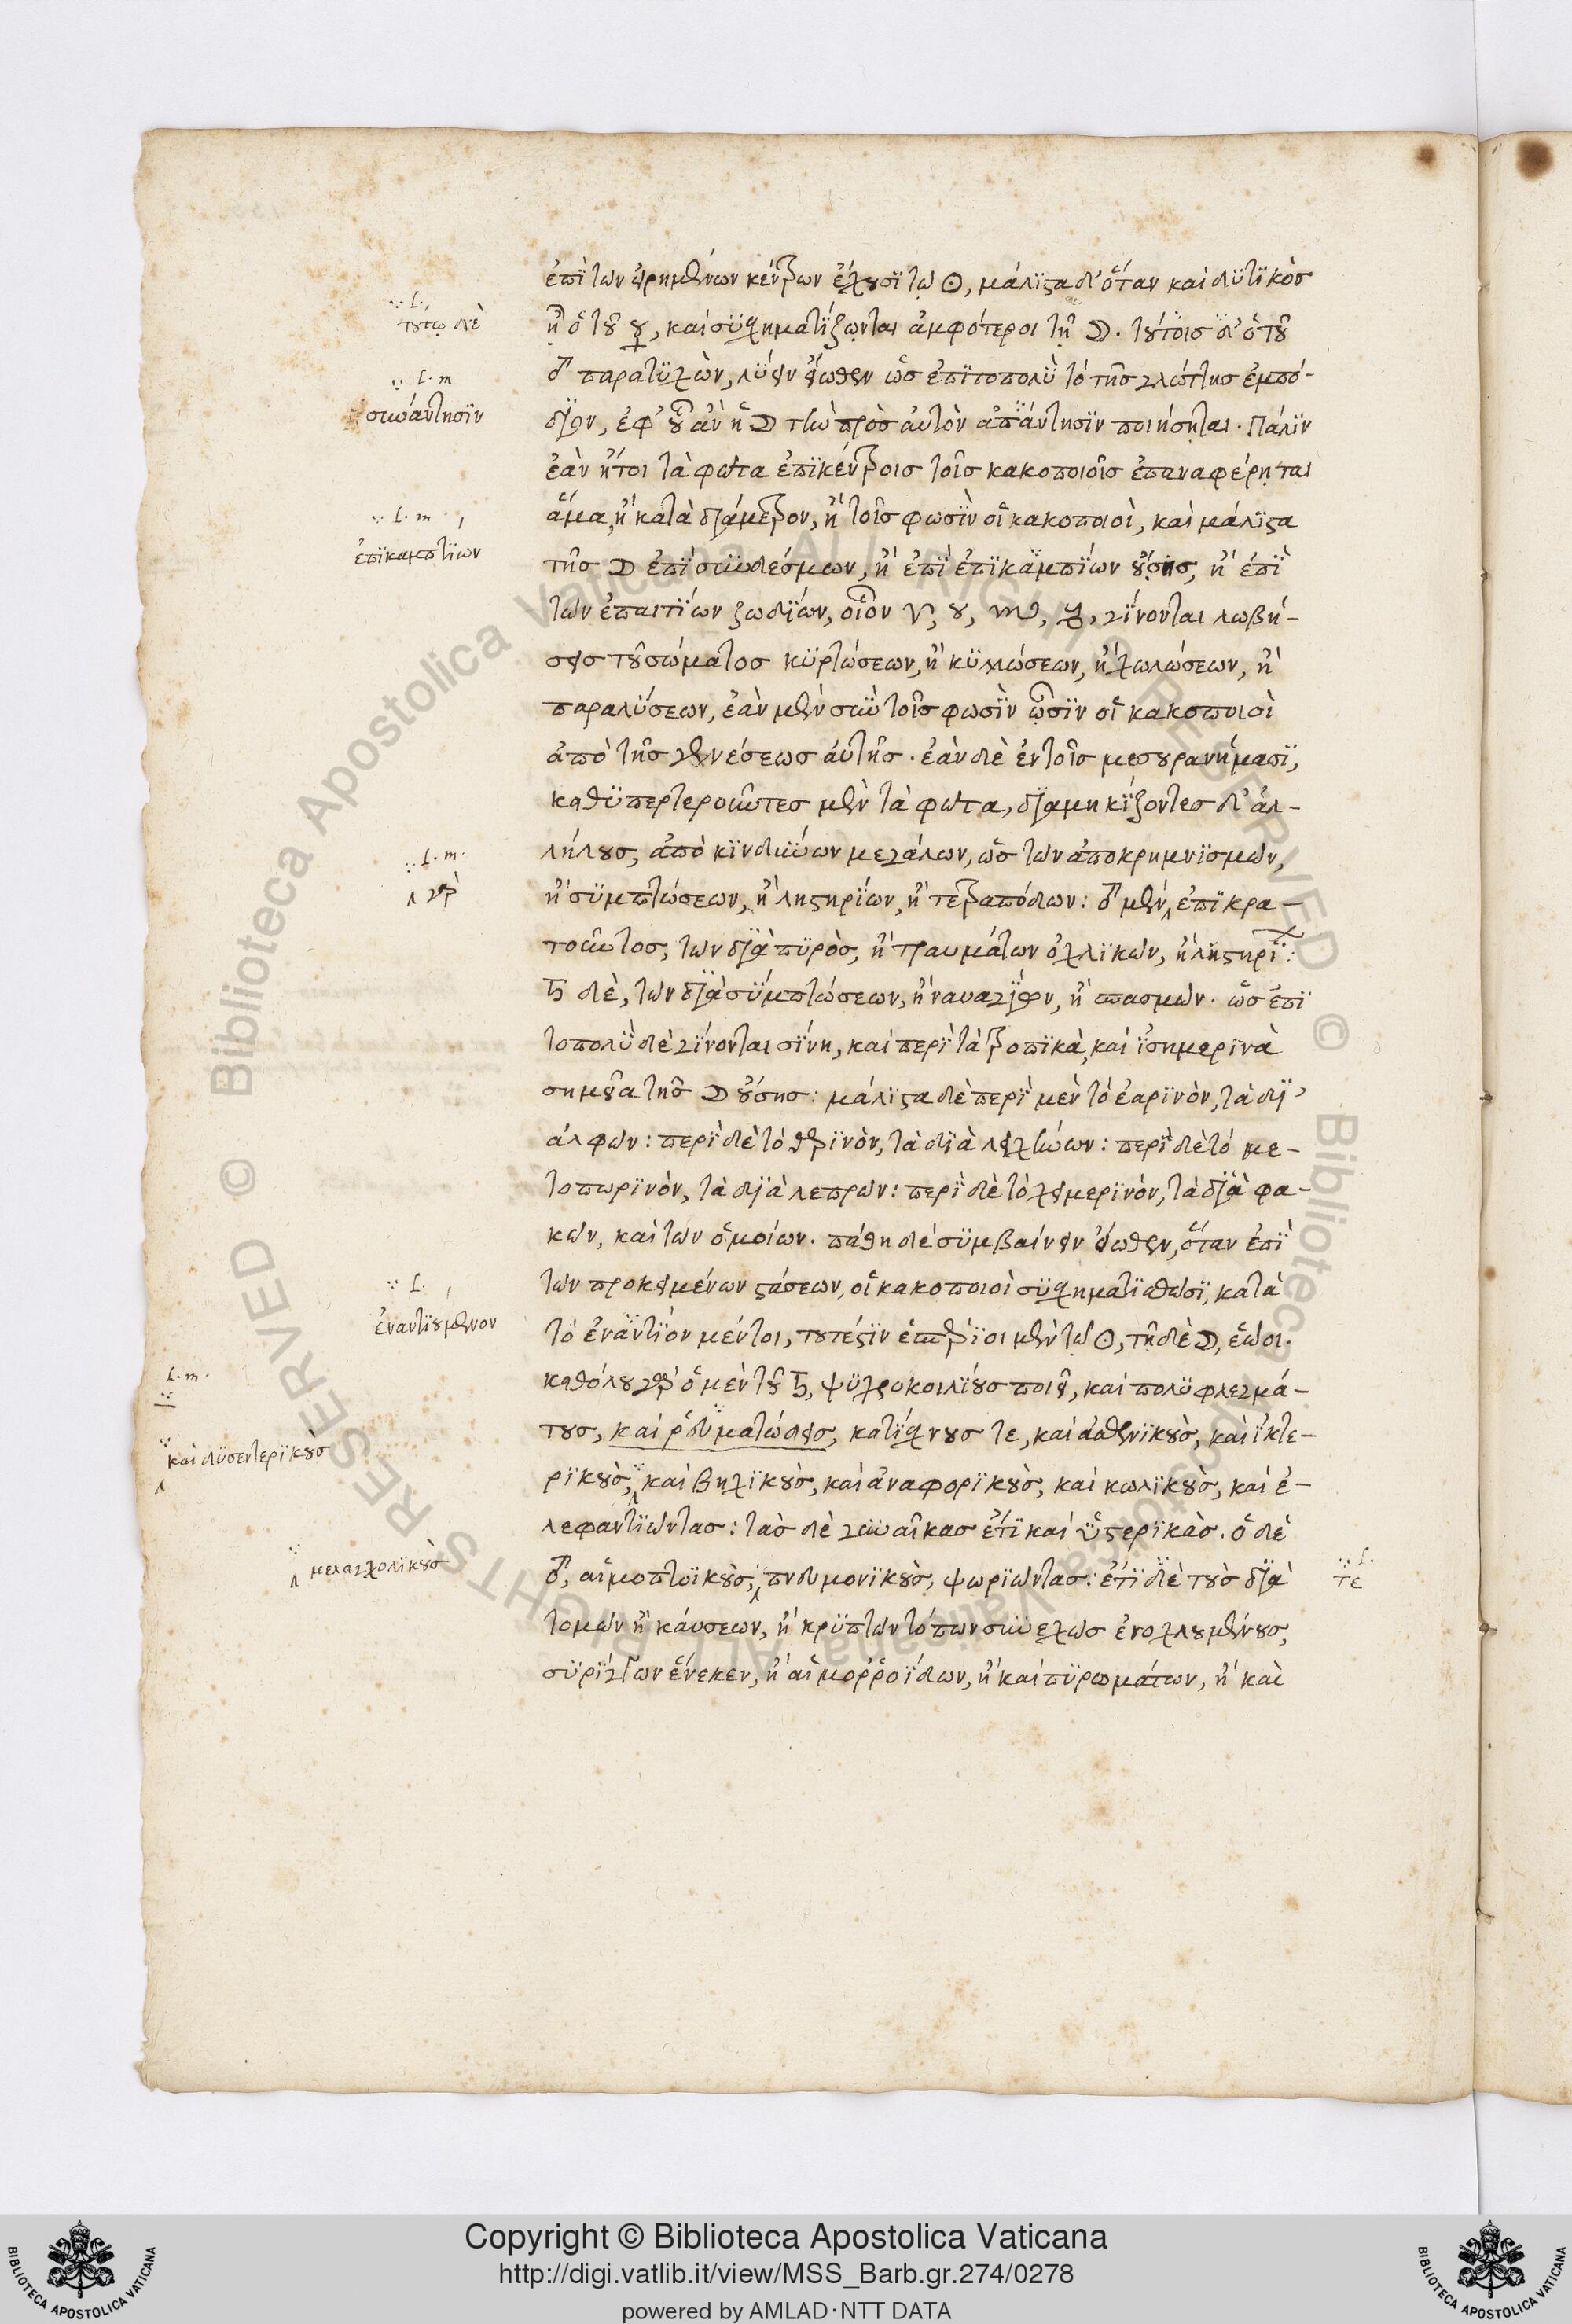 ἐπὶ τῶν εἰρημένων κέντρων ἔχουσι τῷ ☉, μάλιστα δ' ὅταν καὶ δυτικὸς
ᾖ ὁ τοῦ ☿, καὶ συσχηματίζωνται ἀμφότεροι τῇ ☽. τούτοις δ' ὁ τοῦ
♂ παρατυχὼν, λύειν εἴωθεν ὡς ἐπιτοπολὺ τὸ τῆς γλώττης ἐμπό-
διον, ἐφ' οὗ ἂν ἡ ☽ τὴν πρὸς αὐτὸν ἀπάντησιν ποιήσηται. Πάλιν
ἐὰν ἤτοι τὰ φῶτα ἐπικέντροις τοῖς κακοποιοῖς ἐπαναφέρηται
ἅμα, ἢ κατὰ διάμετρον, ἢ τοῖς φωσὶν οἱ κακοποιοὶ, καὶ μάλιστα
τῆς ☽ ἐπὶ συνδέσμων, ἢ ἐπὶ ἐπικαμπίων οὔσης, ἢ ἐπὶ
τῶν ἐπαιτίων ζωδίων, οἷον ♈, ♉, ♏, ♑, γίνονται λωβή-
σεις τοῦ σώματος κυρτώσεων, ἢ κυλλώσεων, ἢ χωλώσεων, ἢ
παραλύσεων, ἐὰν μὲν σὺν τοῖς φωσὶν ὦσιν οἱ κακοποιοὶ
ἀπὸ τῆς γενέσεως αὐτῆς. ἐὰν δὲ ἐν τοῖς μεσουρανήμασι,
καθυπερτεροῦντες μὲν τὰ φῶτα, διαμηκίζοντες δ' ἀλ-
λήλους, ἀπὸ κινδύνων μεγάλων, ὡς τῶν ἀποκρημνισμῶν,
ἢ συμπτώσεων, ἢ ληστηρίων, ἢ τετραπόδων: ♂ μὲν, ἐπικρα-
τοῦντος, τῶν διὰ πυρὸς, ἢ τραυμάτων ὀχλικῶν, ἢ ληστηρί:
♄ δὲ, τῶν διὰ συμπτώσεων, ἢ ναυαγίων, ἢ σπασμῶν. ὡς ἐπὶ
τοπολὺ δὲ γίνονται σίνη, καὶ περὶ τὰ τροπικὰ, καὶ ἰσημερινὰ
σημεῖα τῆς ☽ οὔσης: μάλιστα δὲ περὶ μὲν τὸ ἐαρινὸν, τὰ δι'
ἀλφῶν: περὶ δὲ τὸ θερινὸν, τὰ διὰ λειχήνων: περὶ δὲ τὸ με-
τοπωρινὸν, τὰ διὰ λεπρῶν: περὶ δὲ τὸ χειμερινὸν, τὰ διὰ φα-
κῶν, καὶ τῶν ὁμοίων. πάθη δὲ συμβαίνειν εἴωθεν, ὅταν ἐπὶ
τῶν προκειμένων στάσεων, οἱ κακοποιοὶ συσχηματισθῶσι, κατὰ
τὸ ἐναντίον μέντοι, τουτέστιν ἑσπέριοι μὲν τῷ ☉, τῇ δὲ ☽, ἑῷοι.
καθόλου γὰρ ὁ μὲν τοῦ ♄, ψυχροκοιλίους ποιεῖ, καὶ πολυφλεγμά-
τους, καὶ ῥευματώδεις, κατίσχνους τε, καὶ ἀσθενικοὺς, καὶ ἰκτε-
ρικοὺς, καὶ βηχικοὺς, καὶ ἀναφορικοὺς, καὶ κωλικοὺς, καὶ ἐ-
λεφαντιῶντας: τὰς δὲ γυναῖκας ἔτι καὶ ὑστερικάς. ὁ δὲ
♂, αἱμοπτοϊκοὺς, πνευμονικοὺς, ψωριῶντας: ἔτι δὲ τοὺς διὰ
τομῶν ἢ καύσεων, ἢ κρυπτῶν τόπων συνεχῶς ἐνοχλουμένους,
συρίγγων ἕνεκεν, ἢ αἱμορῥοΐδων, ἢ καὶ πυρωμάτων, ἢ καὶ
L.
τούτῳ δὲ
L. m
συνάντησιν
L. m
ἐπικαμπτίων
L. m.
γὰρ
L.
ἐναντιούμενον
L. m.
καὶ δυσεντερικοὺς
μελαγχολικοὺς
L.
τε
© Biblioteca Apostolica Vaticana ALL RIGHTS RESERVED © Biblioteca Apostolica Vaticana ALL RIGHTS RESERVED
Copyright © Biblioteca Apostolica Vaticana
http://digi.vatlib.it/view/MSS_Barb.gr.274/0278
powered by AMLAD·NTT DATA
BIBLIOTECA APOSTOLICA VATICANA
BIBLIOTECA APOSTOLICA VATICANA